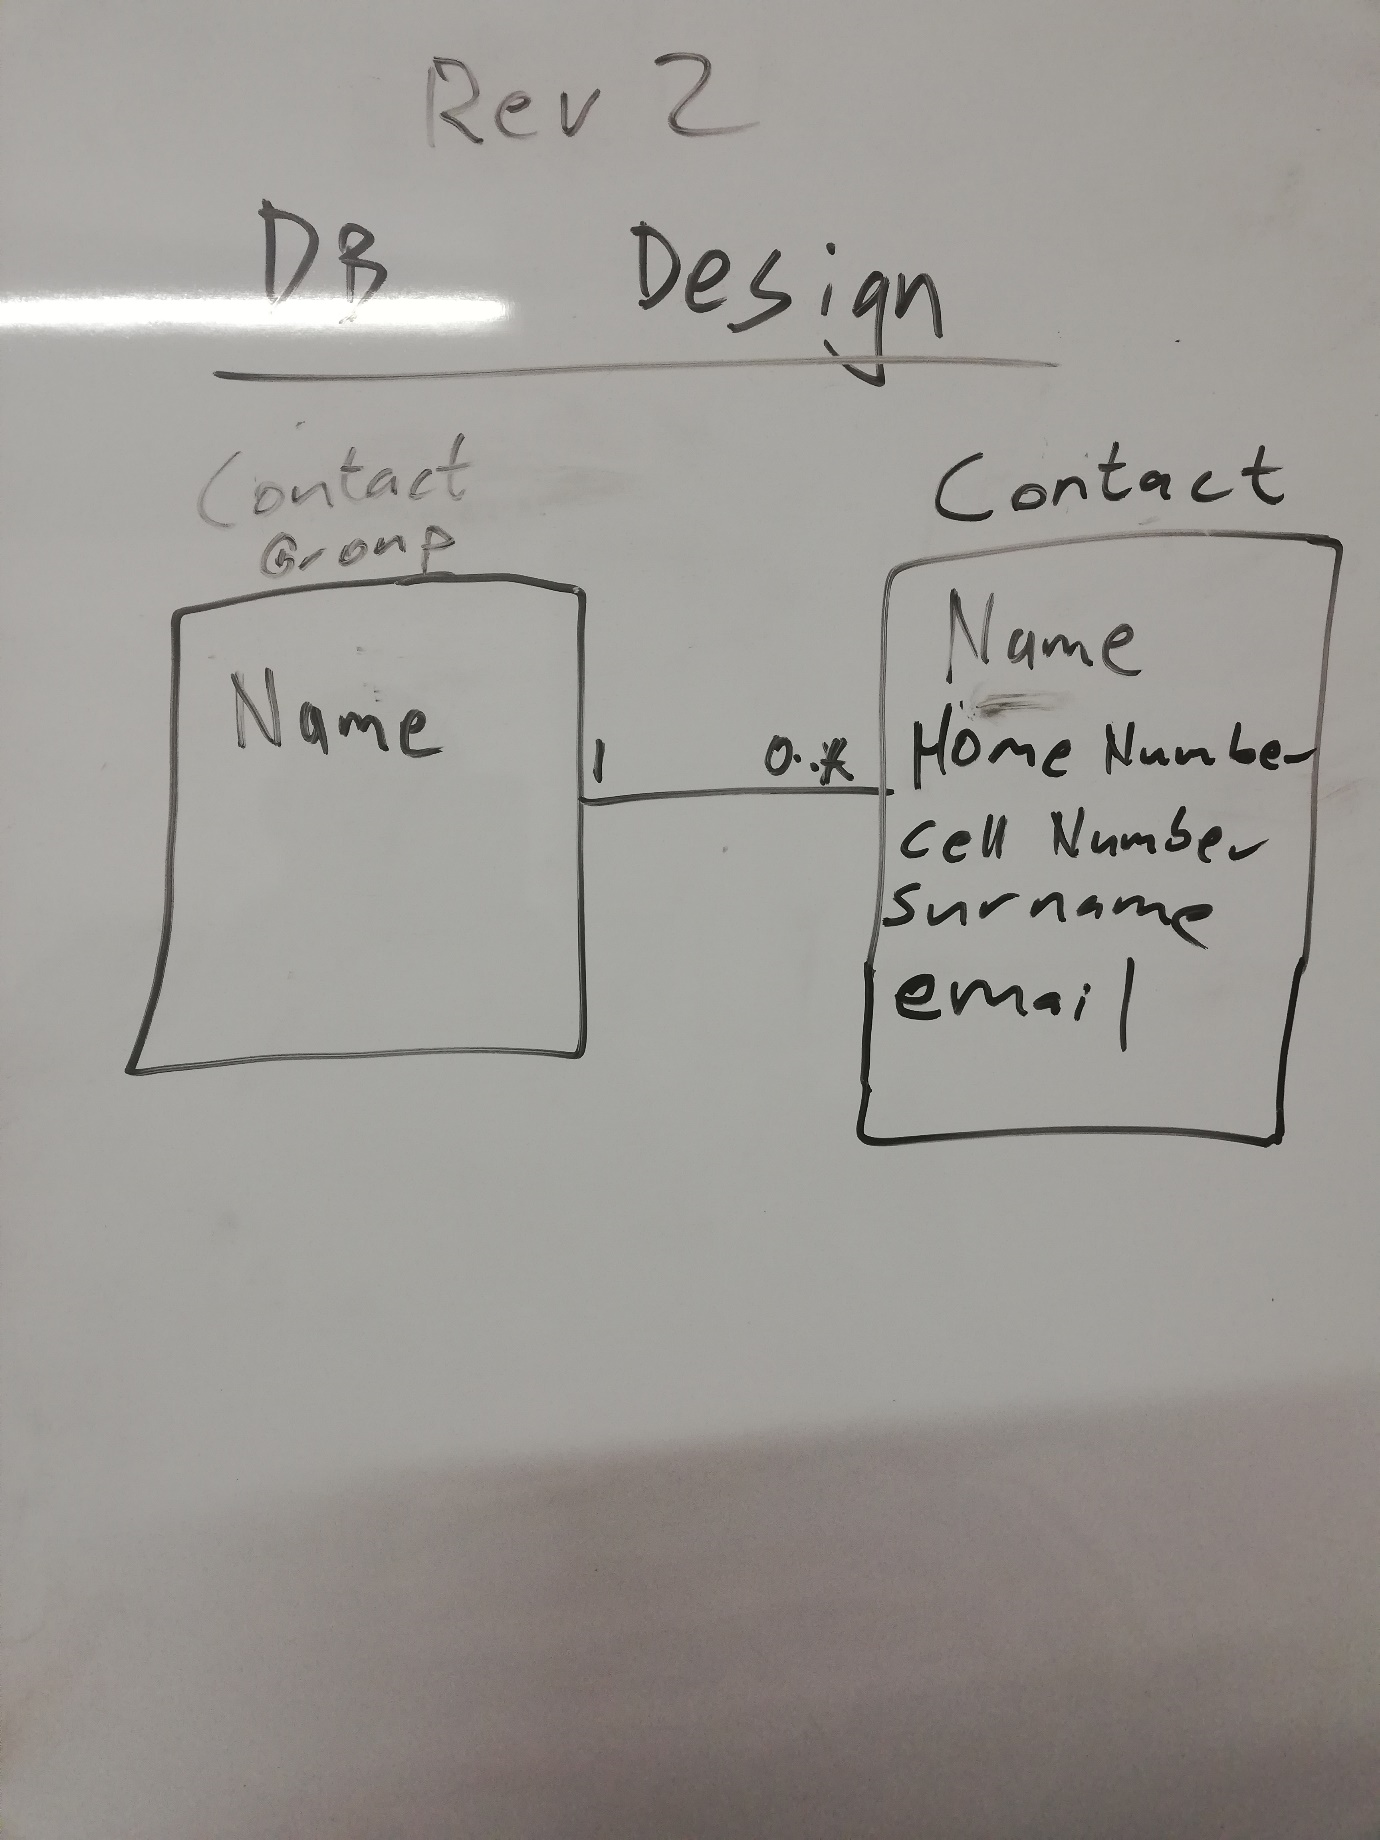 Rev 2
DB Design
Contact
Group
Name
1 0..*
Contact
Name
Home Number
Cell Number
Surname
email